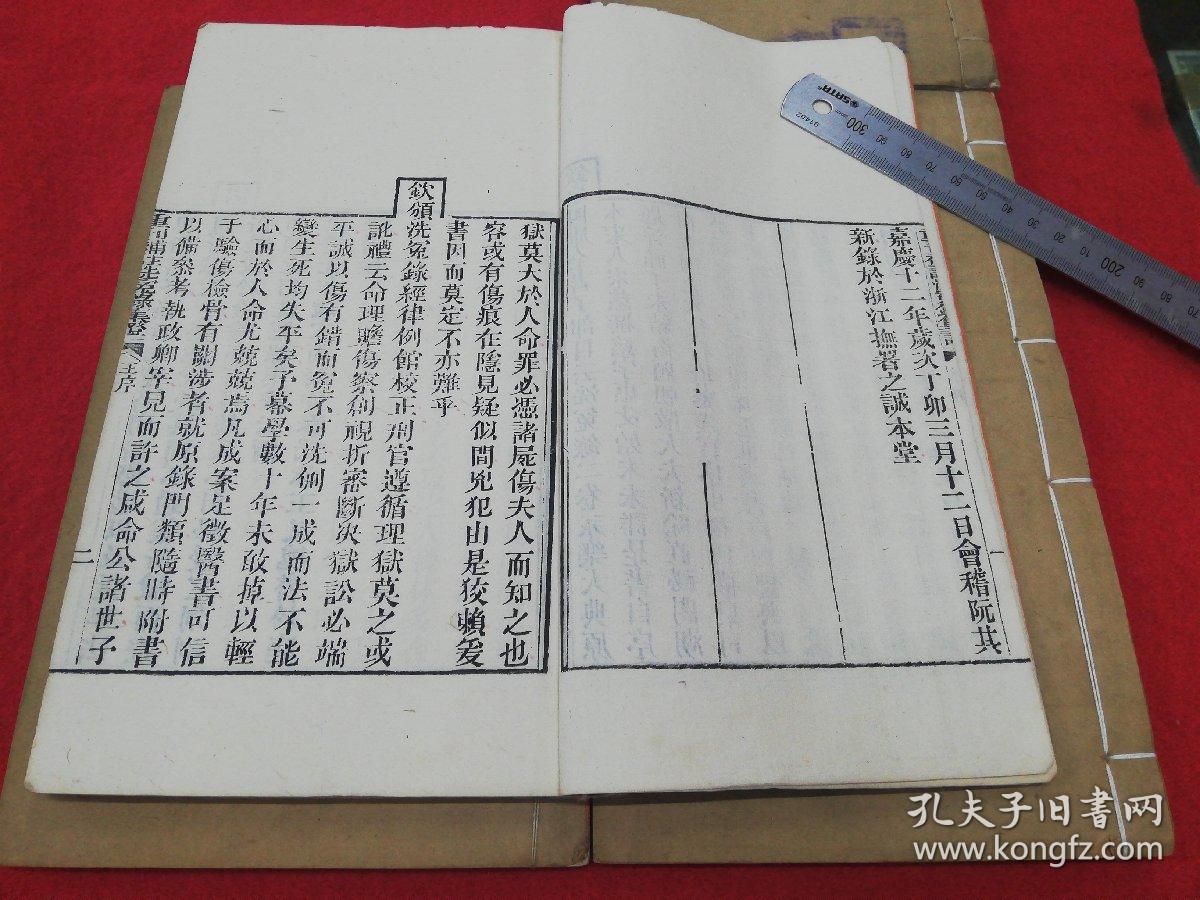 嘉慶十二年歲次丁卯三月十二日會稽阮其
新錄於浙江撫署之誠本堂
一
獄莫大於人命罪必憑諸屍傷夫人而知之也
容或有傷痕在隱見疑似間兇犯由是狡賴爰
書因而莫定不亦難乎
欽頒洗冤錄經律例館校正刑官遵循理獄莫之或
訛禮云命理瞻傷察創視折審斷決獄訟必端
平誠以傷有錯而冤不可洗侀一成而法不能
變生死均失平矣予幕學數十年未敢掉以輕
心而於人命尤兢兢焉凡成案足徵醫書可信
于驗傷檢骨有關涉者就原錄門類隨時附書
以備參考執政卿宰見而許之咸命公諸世子
王序
二
SATA
91402
300
90
80
70
60
50
40
30
20
10
200
90
80
70
孔夫子旧书网
www.kongfz.com